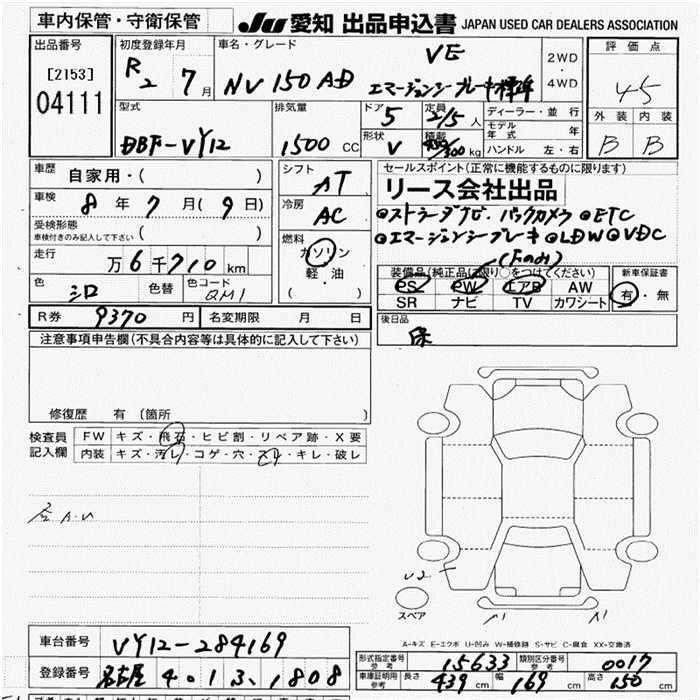 車内保管・守衛保管
JU 愛知 出品申込書 JAPAN USED CAR DEALERS ASSOCIATION
出品番号 [2153] 04111
初度登録年月 R2 7月
車名・グレード NV150AD VE
エマージェンシーブレーキ標準
2WD・4WD
評価点 45
外装 内装
B B
型式 DBF-VY12
排気量 1500 CC
ドア 5 定員 2/5人
形状 V 積載 450/300 kg
ディーラー・並行
モデル年式 年
ハンドル 左・右
車歴 自家用・( )
車検 8年7月(9日)
受検形態
車検付きのみ記入して下さい ( )
走行 万6千710km
色 シロ 色替 色コード QM1
シフト AT
冷房 AC
燃料 ガソリン
軽油
( ・ )
R券 9370円 名変期限 月 日
セールスポイント(正常に機能するものに限ります)
リース会社出品
◎ストラーダナビ.バックカメラ ◎ETC
◎エマージェンシーブレーキ ◎LDW ◎VDC
(Fのみ)
装備品(純正品に限り○をつけてください)
PS PW エアB AW
SR ナビ TV カワシート
新車保証書
有・無
後日品
保
注意事項申告欄(不具合内容等は具体的に記入して下さい)
修復歴 有 (箇所 )
検査員記入欄
FW キズ・飛石・ヒビ割・リペア跡・X要
内装 キズ・汚レ・コゲ・穴・スレ・キレ・破レ
A.U
U2
スペア
A1 A1
A-キズ E-エクボ U-凹み W-補修跡 S-サビ C-腐食 XX-交換済
車台番号 VY12-284169
登録番号 名古屋 401 さ 1808
形式指定番号 参考 15633 類別区分番号 参考 0017
車庫証明用 参考 長さ 439cm 幅 169cm 高さ 150cm